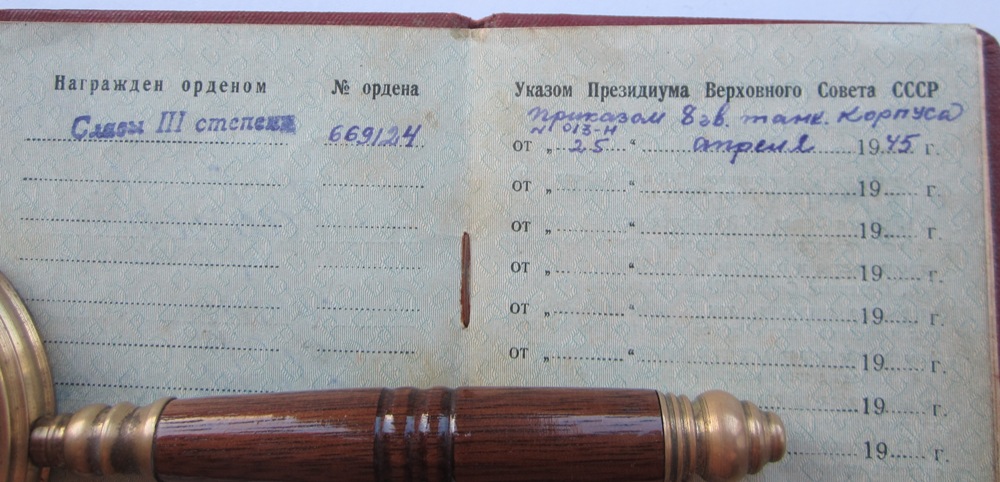 Награжден орденом № ордена
Славы III степени 669124
Указом Президиума Верховного Совета СССР
приказом 8 гв. танк. корпуса
№ 013-н
от „ 25 “ апреля 1945 г.
от „ “ 19 г.
от „ “ 19 г.
от „ “ 19 г.
от „ “ 19 г.
от „ “ 19 г.
19 г.
19 г.